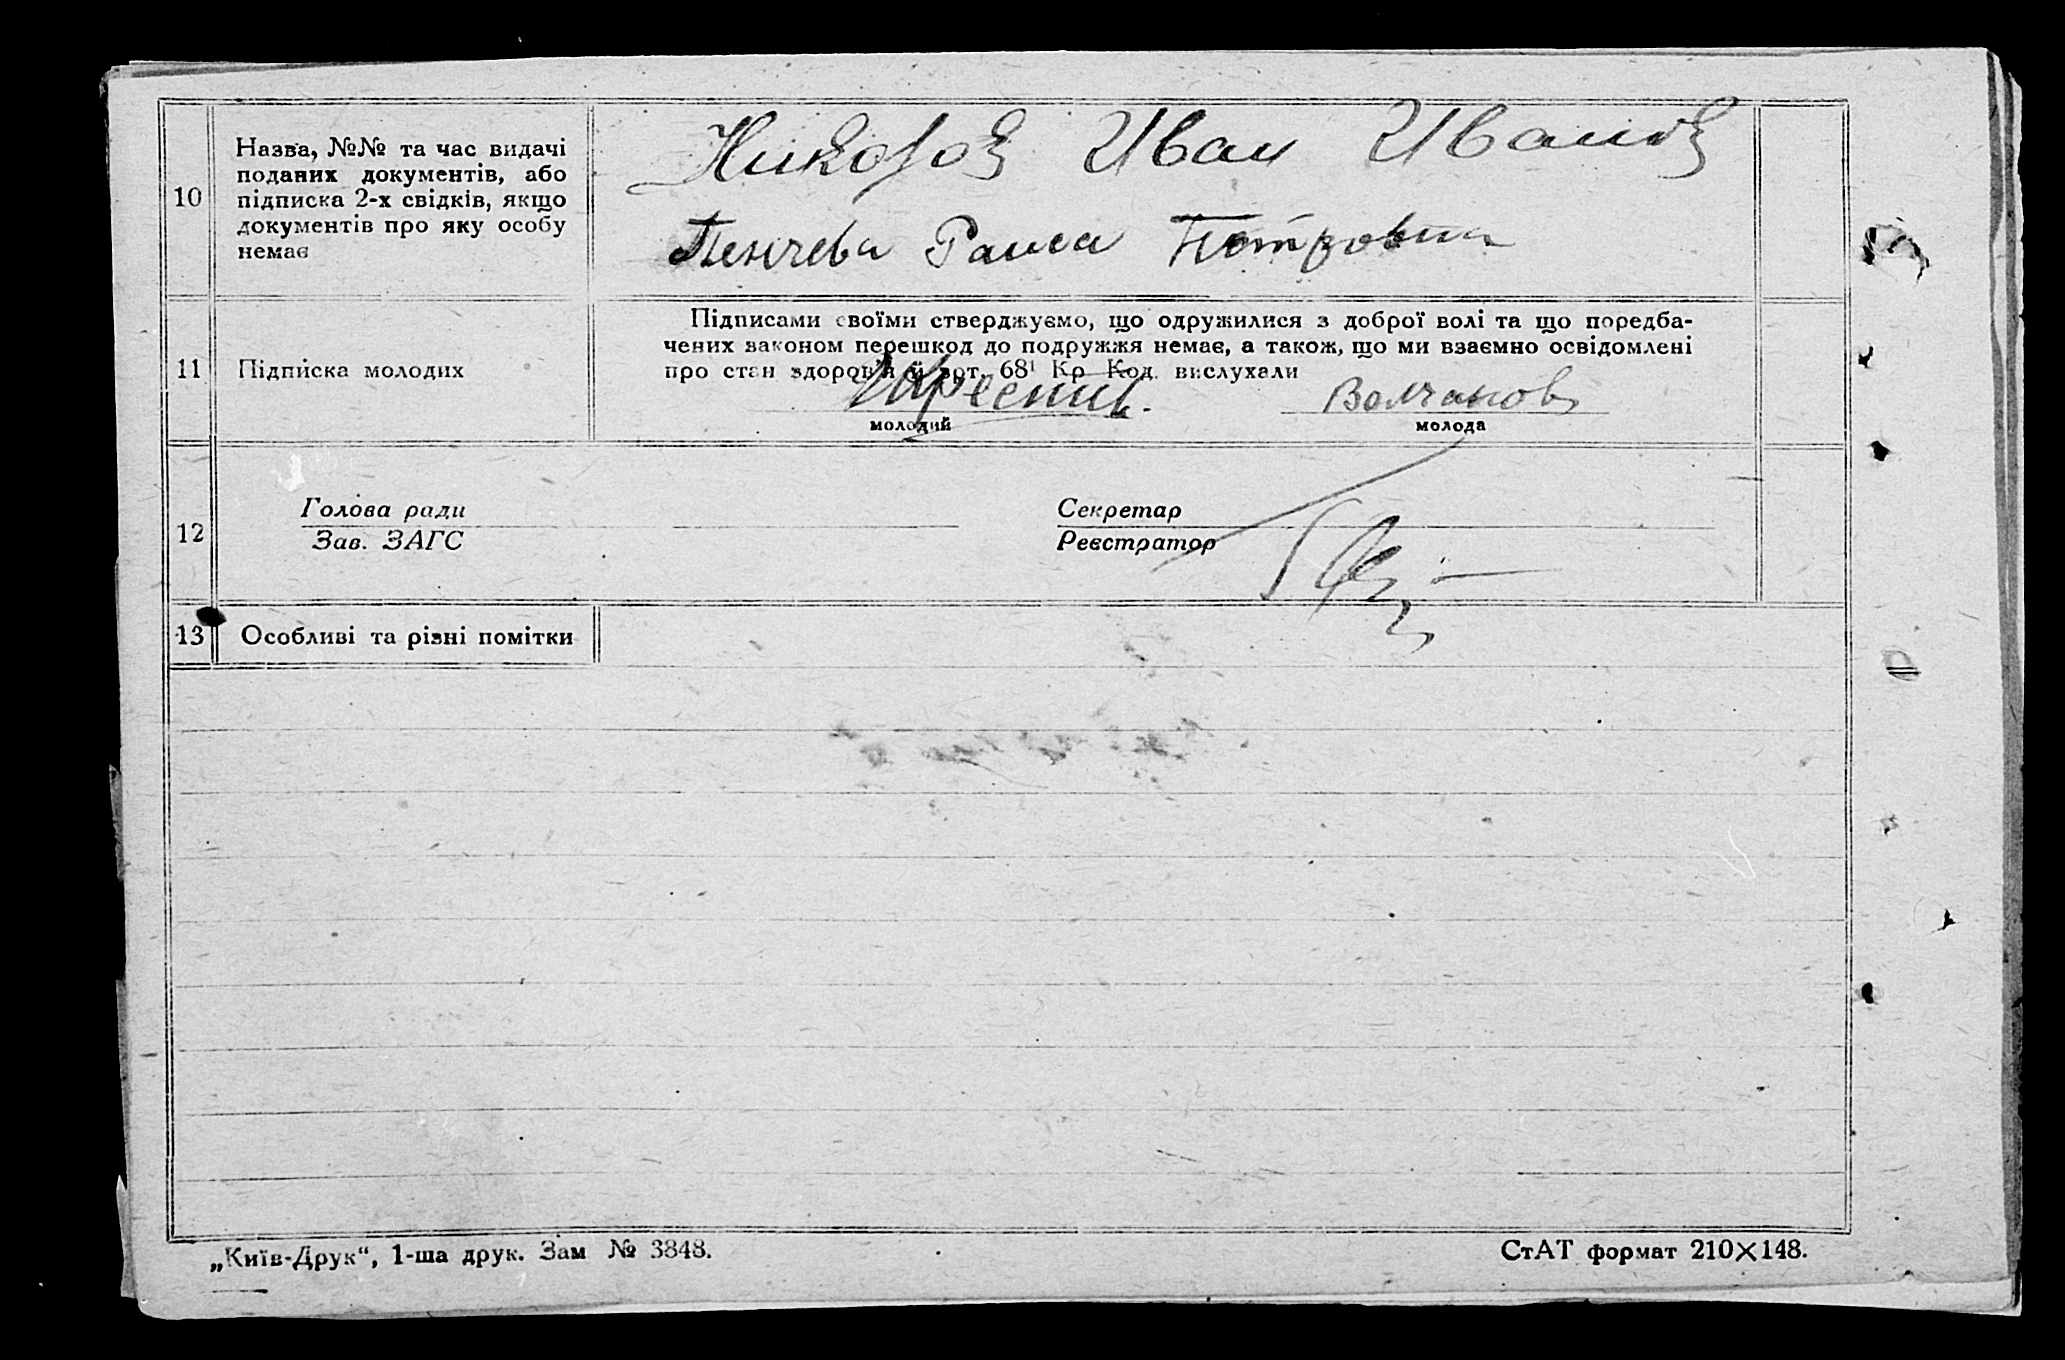 10
Назва, №№ та час видачі
поданих документів, або
підписка 2-х свідків, якщо
документів про яку особу
немає
Иван
Пенчева Раиса Петровна
11
Підписка молодих
Підписами своїми стверджуємо, що одружилися з доброї волі та що передба-
чених законом перешкод до подружжя немає, а також, що ми взаємно освідомлені
про стан здоров'я й арт. 68¹ Кр Код. вислухали
молодий
молода
12
Голова ради
Зав. ЗАГС
Секретар
Реєстратор
13
Особливі та різні помітки
„Київ-Друк“, 1-ша друк. Зам № 3848.
СтАТ формат 210×148.